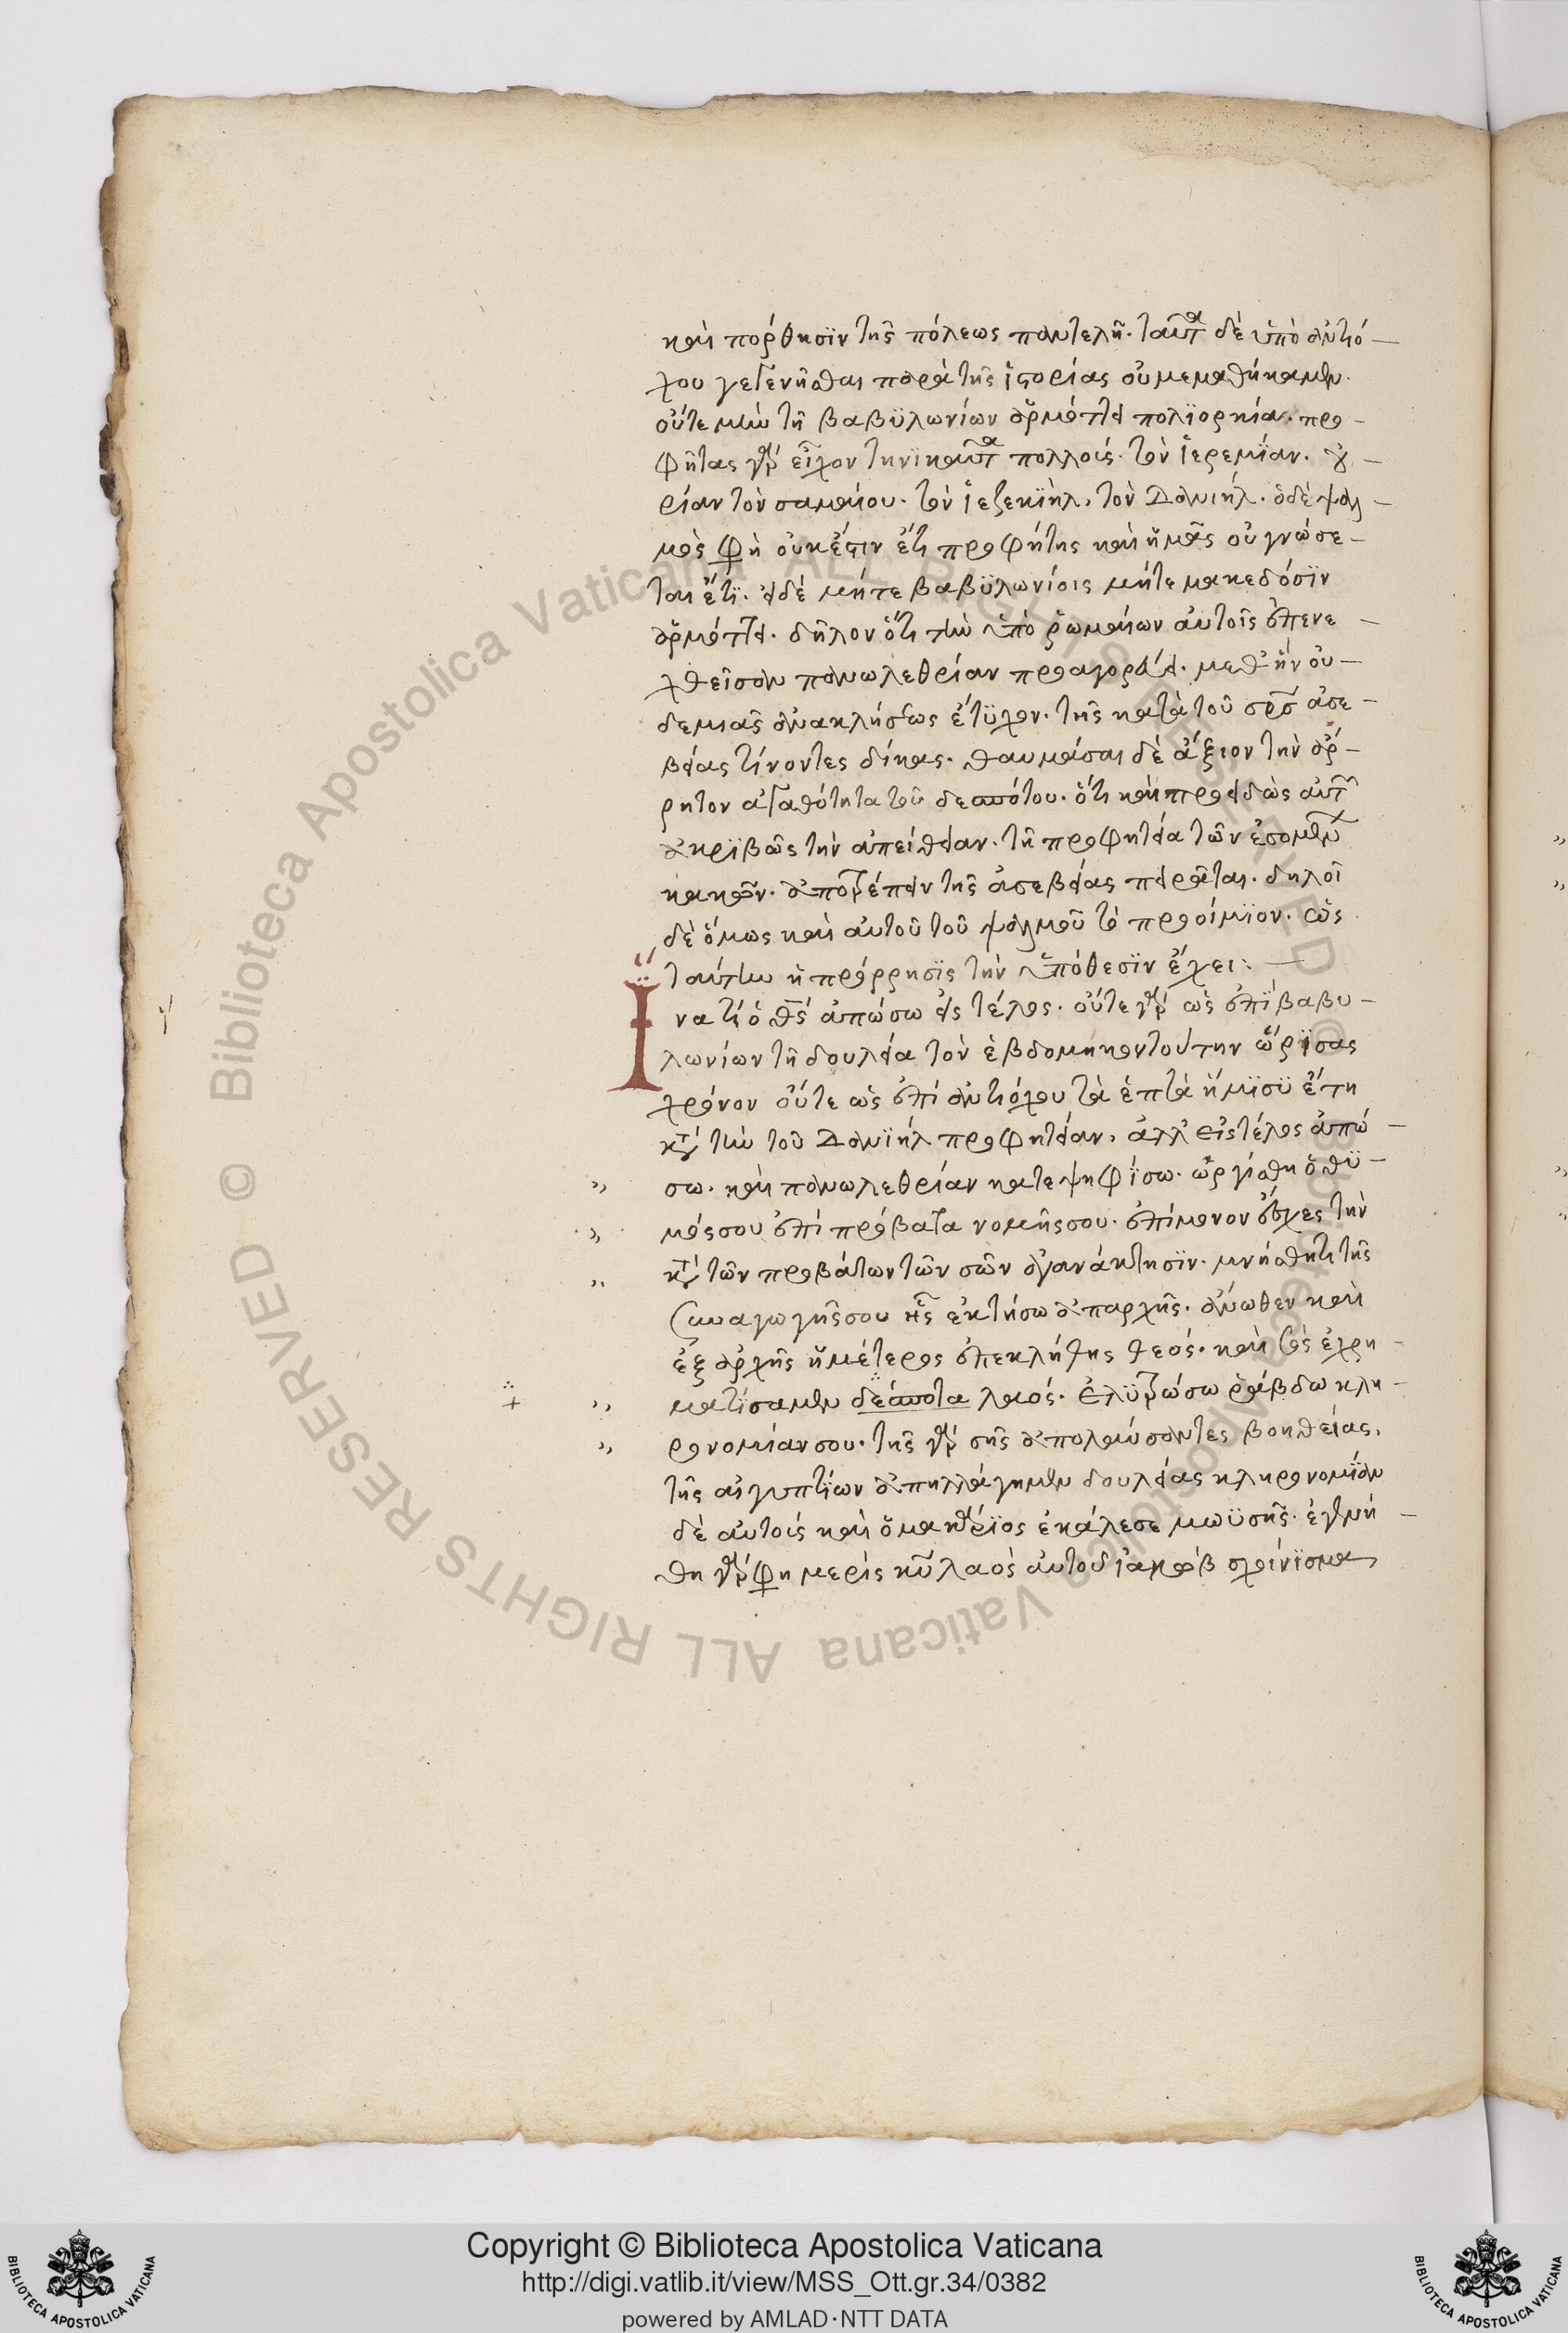 καὶ πόρθησϊν τῆς πόλεως παντελῆ. ταῦτα δὲ ὑπὸ ἀντιό-
χου γεγενῆσθαι παρὰ τῆς ἱστορίας οὐ μεμαθήκαμεν.
οὔτε μὴν τῆ βαβϋλωνίων ἁρμόττει πολϊορκία. προ-
φήτας γὰρ εἶχον τηνϊκαῦτα πολλοὺς. τὸν ἱερεμΐαν. οὐ-
ρίαν τὸν σαμαίου. τὸν ἰεζεκϊὴλ, τὸν Δανιήλ. ὁ δὲ ψαλ-
μὸς φη οὐκ ἔστιν ἔτι προφήτης καὶ ἡμᾶς οὐ γνώσε-
ται ἔτϊ. εἰ δὲ μήτε βαβϋλωνίοις μήτε μακεδόσϊν
ἁρμόττει. δῆλον ὅτι τὴν ὑπὸ ῥωμαίων αὐτοῖς ἐπενε-
χθεῖσαν πανωλεθρίαν προαγορεύει. μεθ' ἣν οὐ-
δεμιᾶς ἀνακλήσεως ἔτϋχον. τῆς κατὰ τοῦ σρσ ἀσε-
βείας τίνοντες δίκας. θαυμάσαι δὲ ἄξιον τὴν ἄρ-
ρητον ἀγαθότητα τοῦ δεσπότου. ὅτι καὶ προειδὼς αὐτῶν
ἀκρϊβῶς τὴν ἀπείθειαν. τῆ προφητεία τῶν ἐσομένων
κακῶν. ἀποτρέπειν τῆς ἀσεβείας πειρᾶται. δηλοῖ
δὲ ὅμως καὶ αὐτοῦ τοῦ ψαλμοῦ τὸ προοίμϊον. ὡς
ταύτην ἡ πρόρρησϊς τὴν ὑπόθεσϊν ἔχει:
Ἵνα τί ὁ θς ἀπώσω εἰς τέλος. οὔτε γὰρ ὡς ἐπϊ βαβυ-
λωνίων τῆ δουλεία τὸν ἑβδομηκοντούτην ὥρϊσας
χρόνον οὔτε ὡς ἐπὶ ἀντιόχου τὰ ἑπτὰ ἥμϊσϋ ἔτη
κατὰ τὴν τοῦ Δανϊὴλ προφητείαν, ἀλλ' εἰς τέλος ἀπώ-
σω. καὶ πανωλεθρίαν κατεψηφΐσω. ὠργίσθη ὁ θϋ-
μός σου ἐπὶ πρόβατα νομῆς σου. ἐπίμονον ἔσχες τὴν
κατὰ τῶν προβάτων τῶν σῶν ἀγανάκτησϊν. μνήσθητι τῆς
συναγωγῆς σου ἧς ἐκτήσω ἀπαρχῆς. ἄνωθεν καὶ
ἐξ ἀρχῆς ἡμέτερος ἐπεκλήθης θεός. καὶ σὸς ἐχρη-
ματϊσαμεν δέσποτα λαός. ἐλϋτρώσω ῥάβδω κλη-
ρονομίαν σου. τῆς γὰρ σῆς ἀπολαύσαντες βοηθείας,
τῆς αἰγυπτϊων ἀπηλλάγημεν δουλείας κληρονομΐαν
δὲ αὐτοὺς καὶ ὁ μακάρϊος ἐκάλεσε μωϋσῆς. ἐγενή-
θη γάρ φη μερὶς κυ λαὸς αὐτοῦ ἰακώβ σχοίνϊσμα